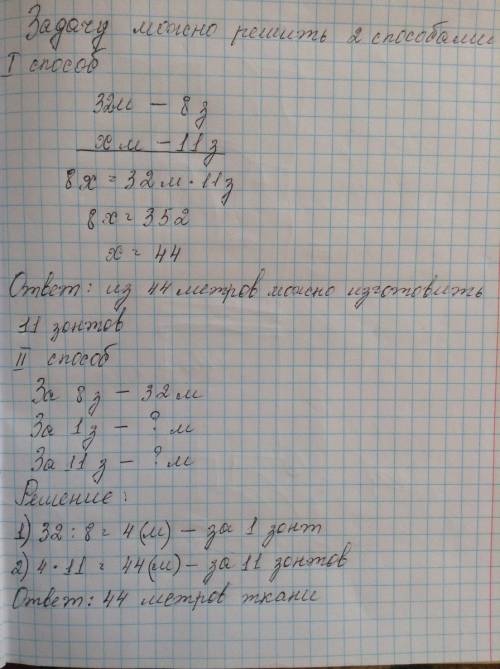 Задачу можно решить 2 способами
I способ
32м – 8 з
х м – 11 з
8х = 32м · 11 з
8х = 352
х = 44
Ответ: из 44 метров можно изготовить
11 зонтов
II способ
За 8 з – 32 м
За 1 з – ? м
За 11 з – ? м
Решение:
1) 32 : 8 = 4 (м) – за 1 зонт
2) 4 · 11 = 44 (м) – за 11 зонтов
Ответ: 44 метров ткани